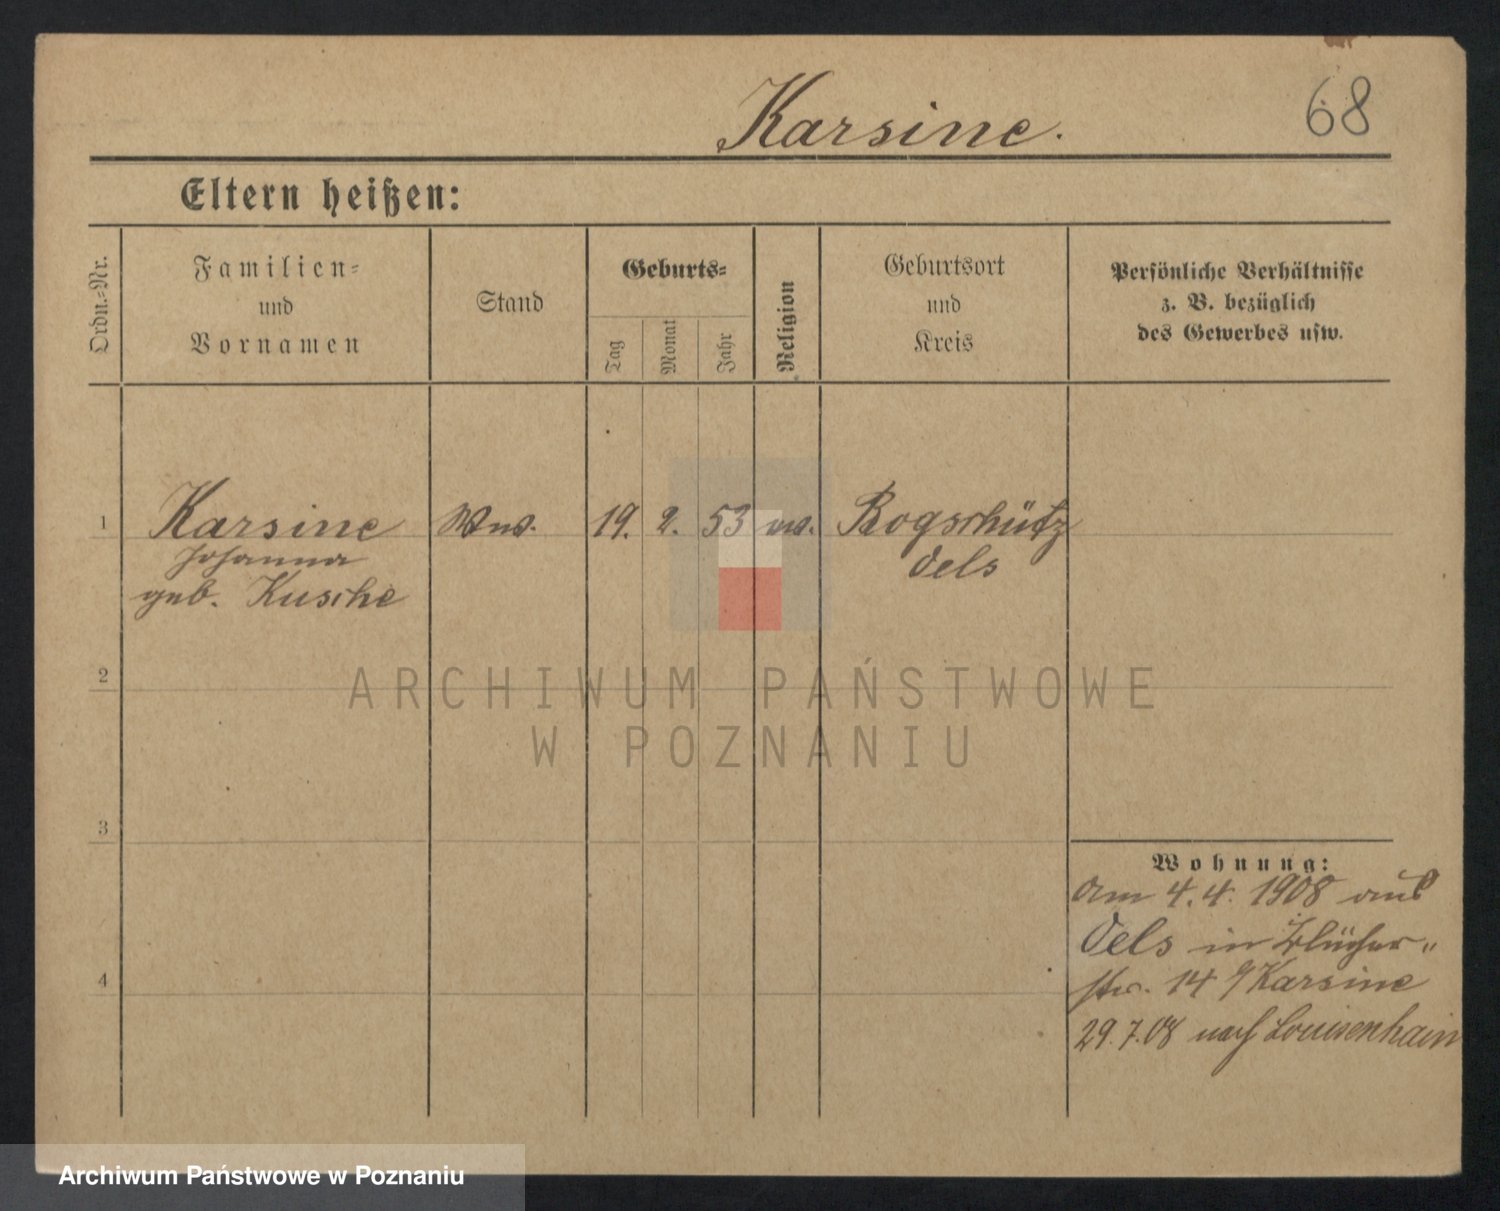 Karsine.
68
Eltern heißen:
Ordn.-Nr.
Familien-
und
Vornamen
Stand
Geburts-
Tag
Monat
Jahr
Religion
Geburtsort
und
Kreis
Persönliche Verhältnisse
z. B. bezüglich
des Gewerbes usw.
1
Karsine
Johanna
geb. Kusche
Ww.
19. 2. 53
ev.
Rogschütz
Oels
2
3
4
Wohnung:
Am 4.4. 1908 aus
Oels in Blücher"
str. 14 b/Karsine
29.7.08 nach Louisenhain
ARCHIWUM PAŃSTWOWE
W POZNANIU
Archiwum Państwowe w Poznaniu